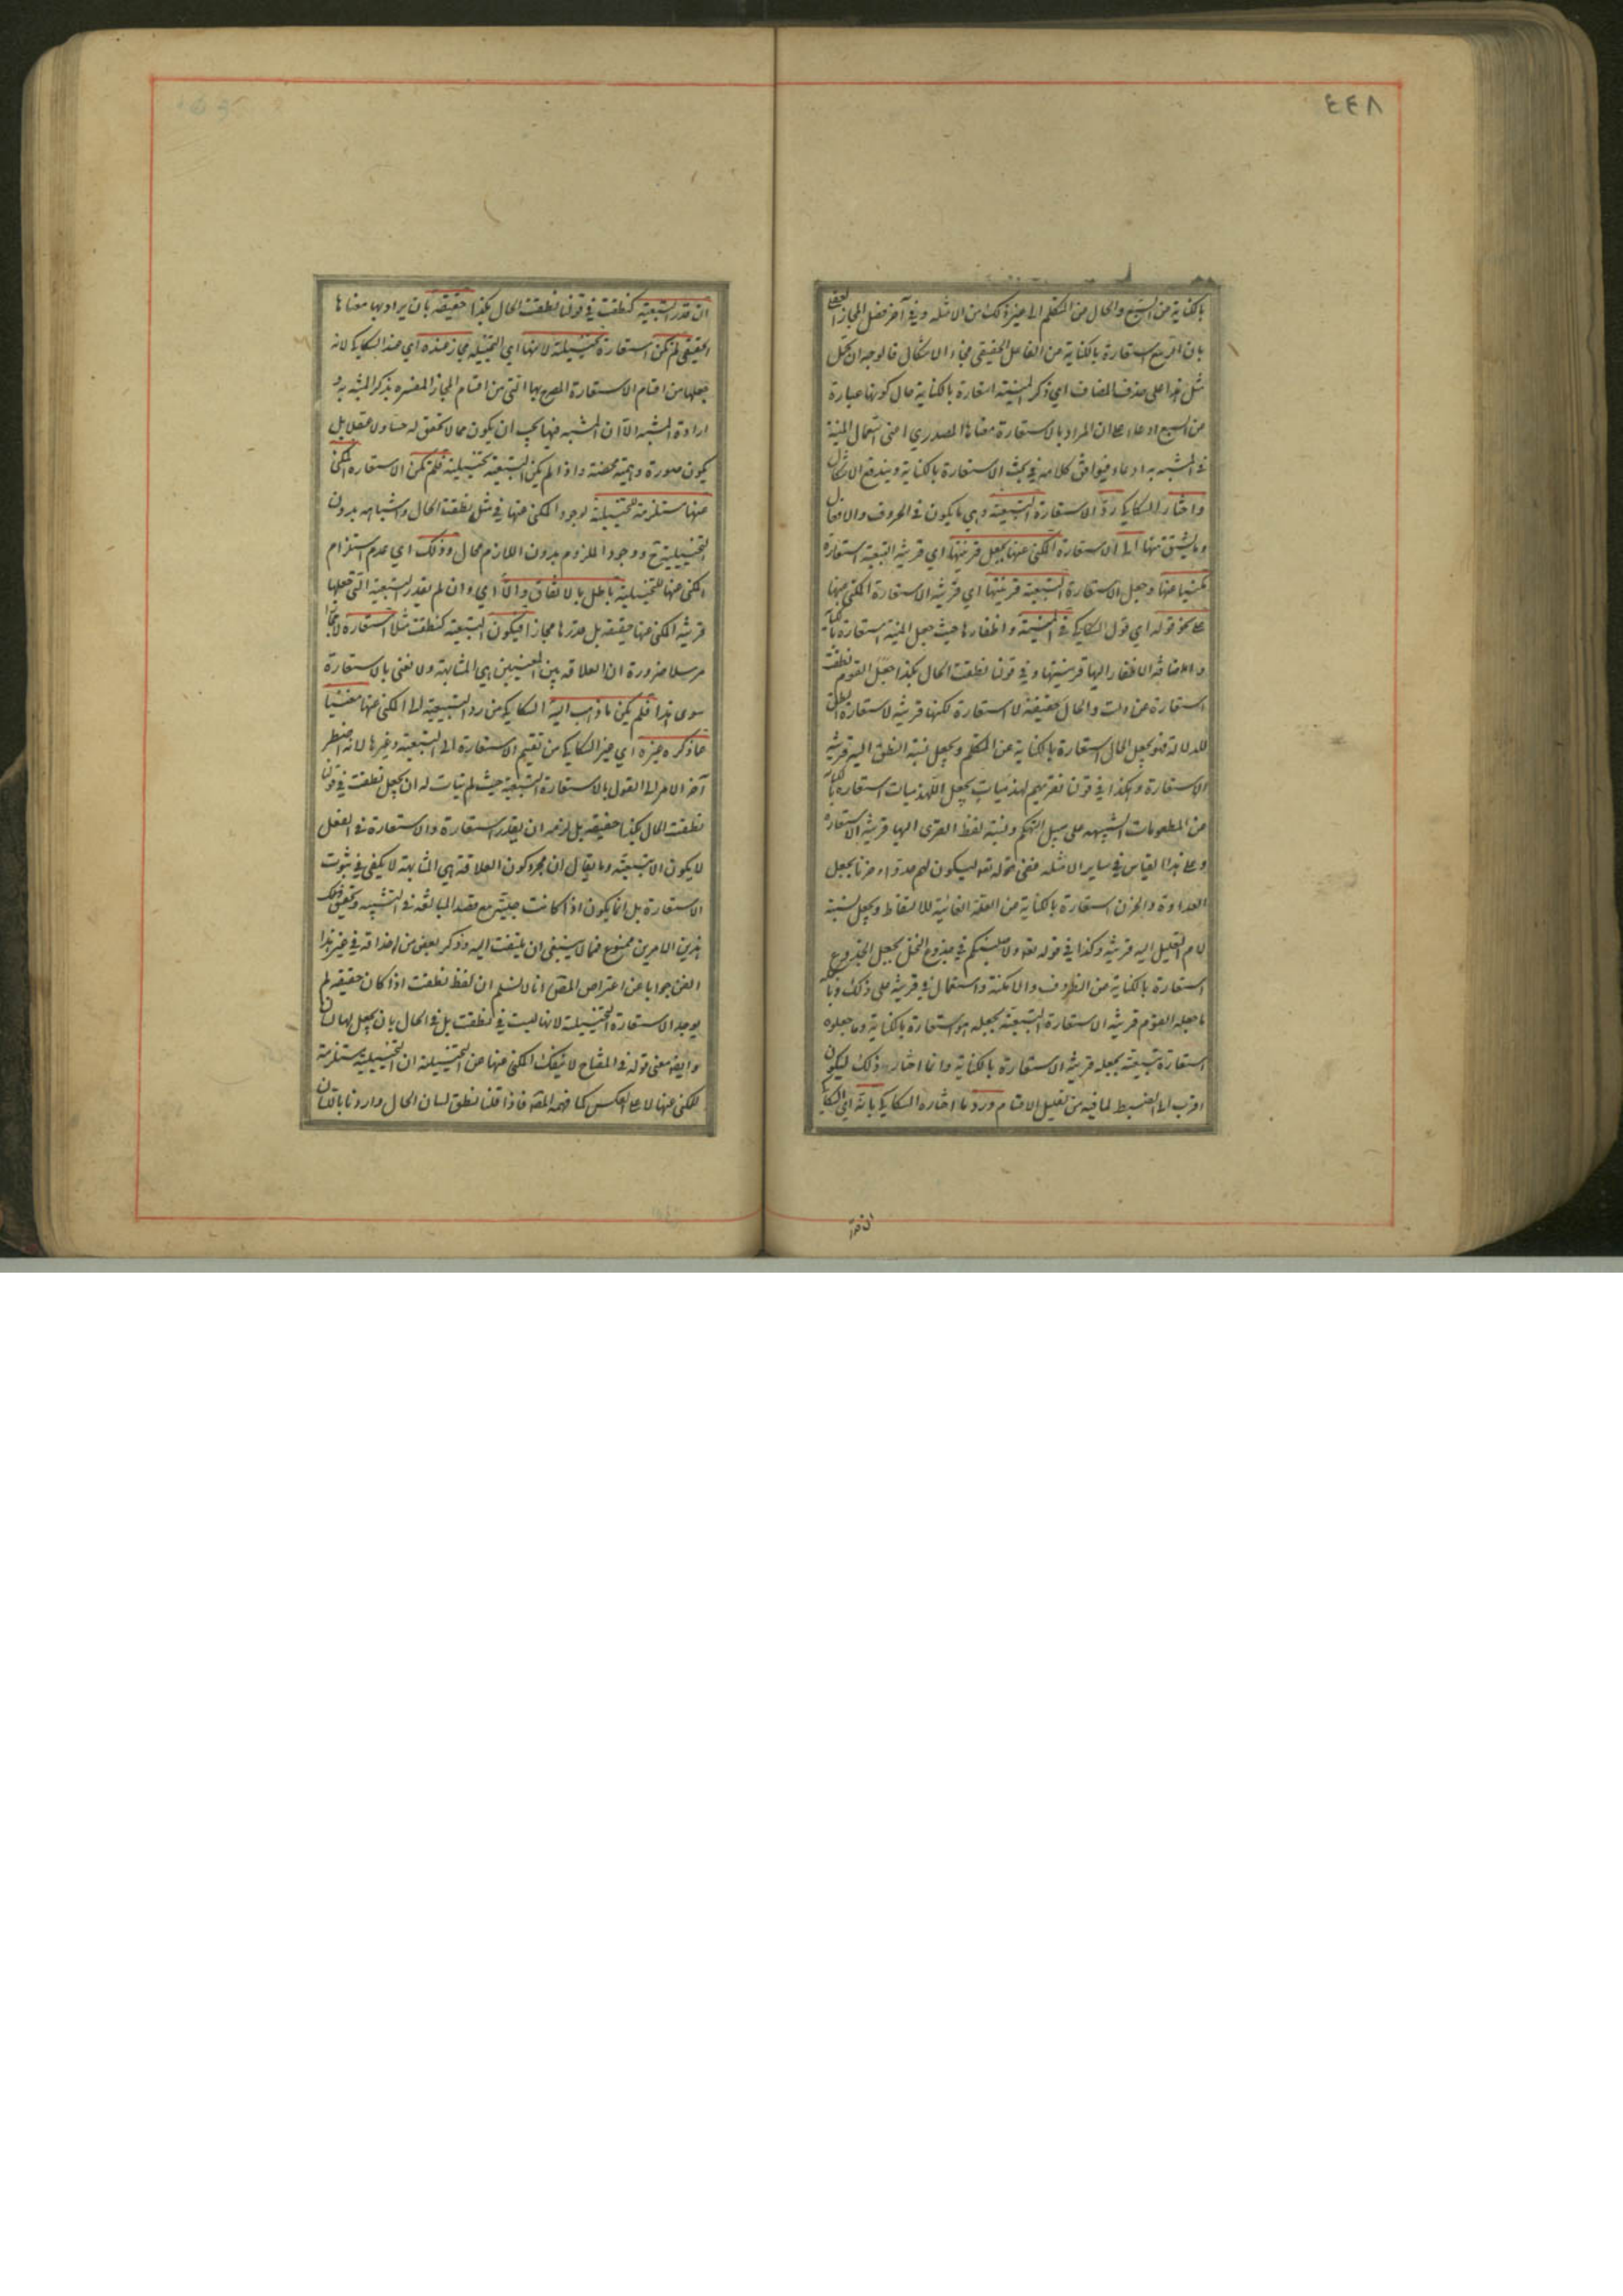 ٤٤٨
بالكناية عن السبع والحال عن المتكلم الى غير ذلك من الامثلة وفى آخر فصل المجاز العقلى
بان الربيع استعارة بالكناية عن الفاعل الحقيقى فجاء الاشكال فالوجه ان يحمل
مثل هذا على حذف المضاف اى ذكر المنية استعارة بالكناية حال كونها عبارة
عن السبع ادعاء على ان المراد بالاستعارة معناها المصدرى اعنى استعمال المنية
فى المشبه به ادعاء فيوافق كلامه فى بحث الاستعارة بالكناية ويندفع الاشكال
واختار السكاكى رد الاستعارة التبعية وهى ما يكون فى الحروف والافعال
وما يشتق منها الى الاستعارة المكنى عنها بجعل قرينتها اى قرينة التبعية استعارة
مكنيا عنها وجعل الاستعارة التبعية قرينتها اى قرينة الاستعارة المكنى عنها
على نحو قوله اى قول السكاكى فى المنية واظفارها حيث جعل المنية استعارة بالكناية
واضافة الاظفار اليها قرينتها وفى قولنا نطقت الحال بكذا جعل القوم نطقت
استعارة عن دلت والحال حقيقة لا استعارة لكنها قرينة لاستعارة النطق
للدلالة فهو يجعل الحال استعارة بالكناية عن المتكلم ويجعل نسبة النطق اليه قرينة
الاستعارة وهكذا فى قولنا نقريهم لهذميات يجعل اللهذميات استعارة بالكناية
عن المطعومات الشهية على سبيل التهكم ونسبة لفظ القرى اليها قرينة الاستعارة
وعلى هذا القياس فى ساير الامثلة ففى قوله تعه ليكون لهم عدوا وحزنا يجعل
العداوة والحزن استعارة بالكناية عن العلة الغائية للالتقاط ويجعل نسبة
لام التعليل اليه قرينة وكذا فى قوله تعه ولاصلبنكم فى جذوع النخل يجعل الجذوع
استعارة بالكناية عن الظروف والامكنة واستعمال فى قرينة على ذلك وبالجملة
ما جعله القوم قرينة الاستعارة التبعية يجعله هو استعارة بالكناية وما جعلوه
استعارة تبعية يجعله قرينة الاستعارة بالكناية وانما اختار ذلك ليكون
اقرب الى الضبط لما فيه من تقليل الاقسام ورد ما اختاره السكاكى بانه اى السكاكى
ان قدر
ان قدر التبعية كنطقت فى قولنا نطقت الحال بكذا حقيقة بان يراد بها معناها
الحقيقى لم تكن استعارة تخييلية لانها اى التخييلية مجاز عنده اى عند السكاكى لانه
جعلها من اقسام الاستعارة المصرح بها التى من اقسام المجاز المفسرة بذكر المشبه به و
ارادة المشبه الا ان المشبه فيها يجب ان يكون مما لا تحقق له حسا ولا عقلا بل
يكون صورة وهمية محضة واذا لم يكن التبعية تخييلية فلم تكن الاستعارة المكنى
عنها مستلزمة للتخييلية لوجود المكنى عنها فى مثل نطقت الحال واشباهه بدون
التخييلية ح ووجود الملزوم بدون اللازم محال وذلك اى عدم استلزام
المكنى عنها للتخييلية باطل بالاتفاق والا اى وان لم يقدر التبعية التى جعلها
قرينة المكنى عنها حقيقة بل قدرها مجازا فيكون التبعية كنطقت مثلا استعارة لا مجازا
مرسلا ضرورة ان العلاقة بين المعنيين هى المشابهة ولا نعنى بالاستعارة
سوى هذا فلم يكن ما ذهب اليه السكاكى من رد التبعية الى المكنى عنها مغنيا
عما ذكره غيره اى غير السكاكى من تقسيم الاستعارة الى التبعية وغيرها لانه اضطر
آخر الامر الى القول بالاستعارة التبعية حيث لم يتأت له ان يجعل نطقت فى قولنا
نطقت الحال بكذا حقيقة بل لزمه ان يقدر استعارة والاستعارة فى الفعل
لا يكون الا تبعية وما يقال ان مجرد كون العلاقة هى المشابهة لا يكفى فى ثبوت
الاستعارة بل انما يكون اذا كانت جلية مع قصد المبالغة فى التشبيه وتحقق
هذين الامرين ممنوع فمما لا ينبغى ان يلتفت اليه وذكر بعض من له حذاقة فى غير هذا
الفن جوابا عن اعتراض المص انا لا نسلم ان لفظ نطقت اذا كان حقيقة لم
يوجد الاستعارة التخييلية لانها ليست فى نطقت بل فى الحال بان يجعل لها لسان
وايضا معنى قوله فى المفتاح لا ينفك المكنى عنها عن التخييلية ان التخييلية مستلزمة
للمكنى عنها لا على العكس كما فهمه المص فاذا قلنا نطق لسان الحال واردنا باللسان